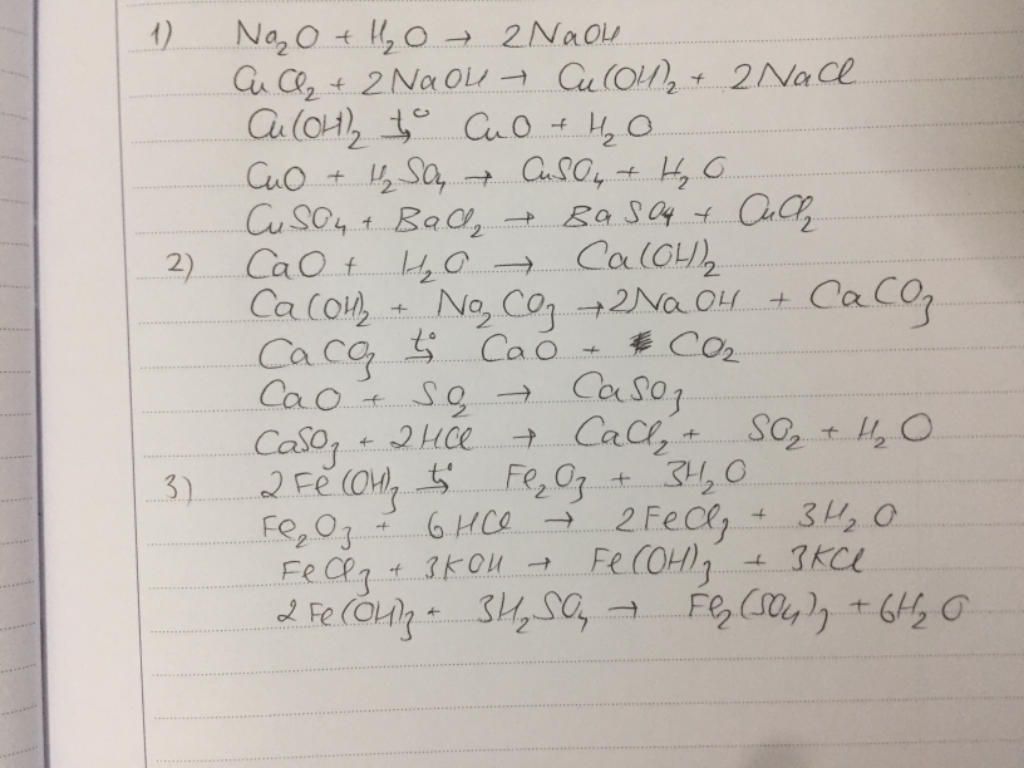 1) Na₂O + H₂O → 2NaOH
CuCl₂ + 2NaOH → Cu(OH)₂ + 2NaCl
Cu(OH)₂ t°→ CuO + H₂O
CuO + H₂SO₄ → CuSO₄ + H₂O
CuSO₄ + BaCl₂ → BaSO₄ + CuCl₂
2) CaO + H₂O → Ca(OH)₂
Ca(OH)₂ + Na₂CO₃ → 2NaOH + CaCO₃
CaCO₃ t°→ CaO + CO₂
CaO + SO₂ → CaSO₃
CaSO₃ + 2HCl → CaCl₂ + SO₂ + H₂O
3) 2Fe(OH)₃ t°→ Fe₂O₃ + 3H₂O
Fe₂O₃ + 6HCl → 2FeCl₃ + 3H₂O
FeCl₃ + 3KOH → Fe(OH)₃ + 3KCl
2Fe(OH)₃ + 3H₂SO₄ → Fe₂(SO₄)₃ + 6H₂O